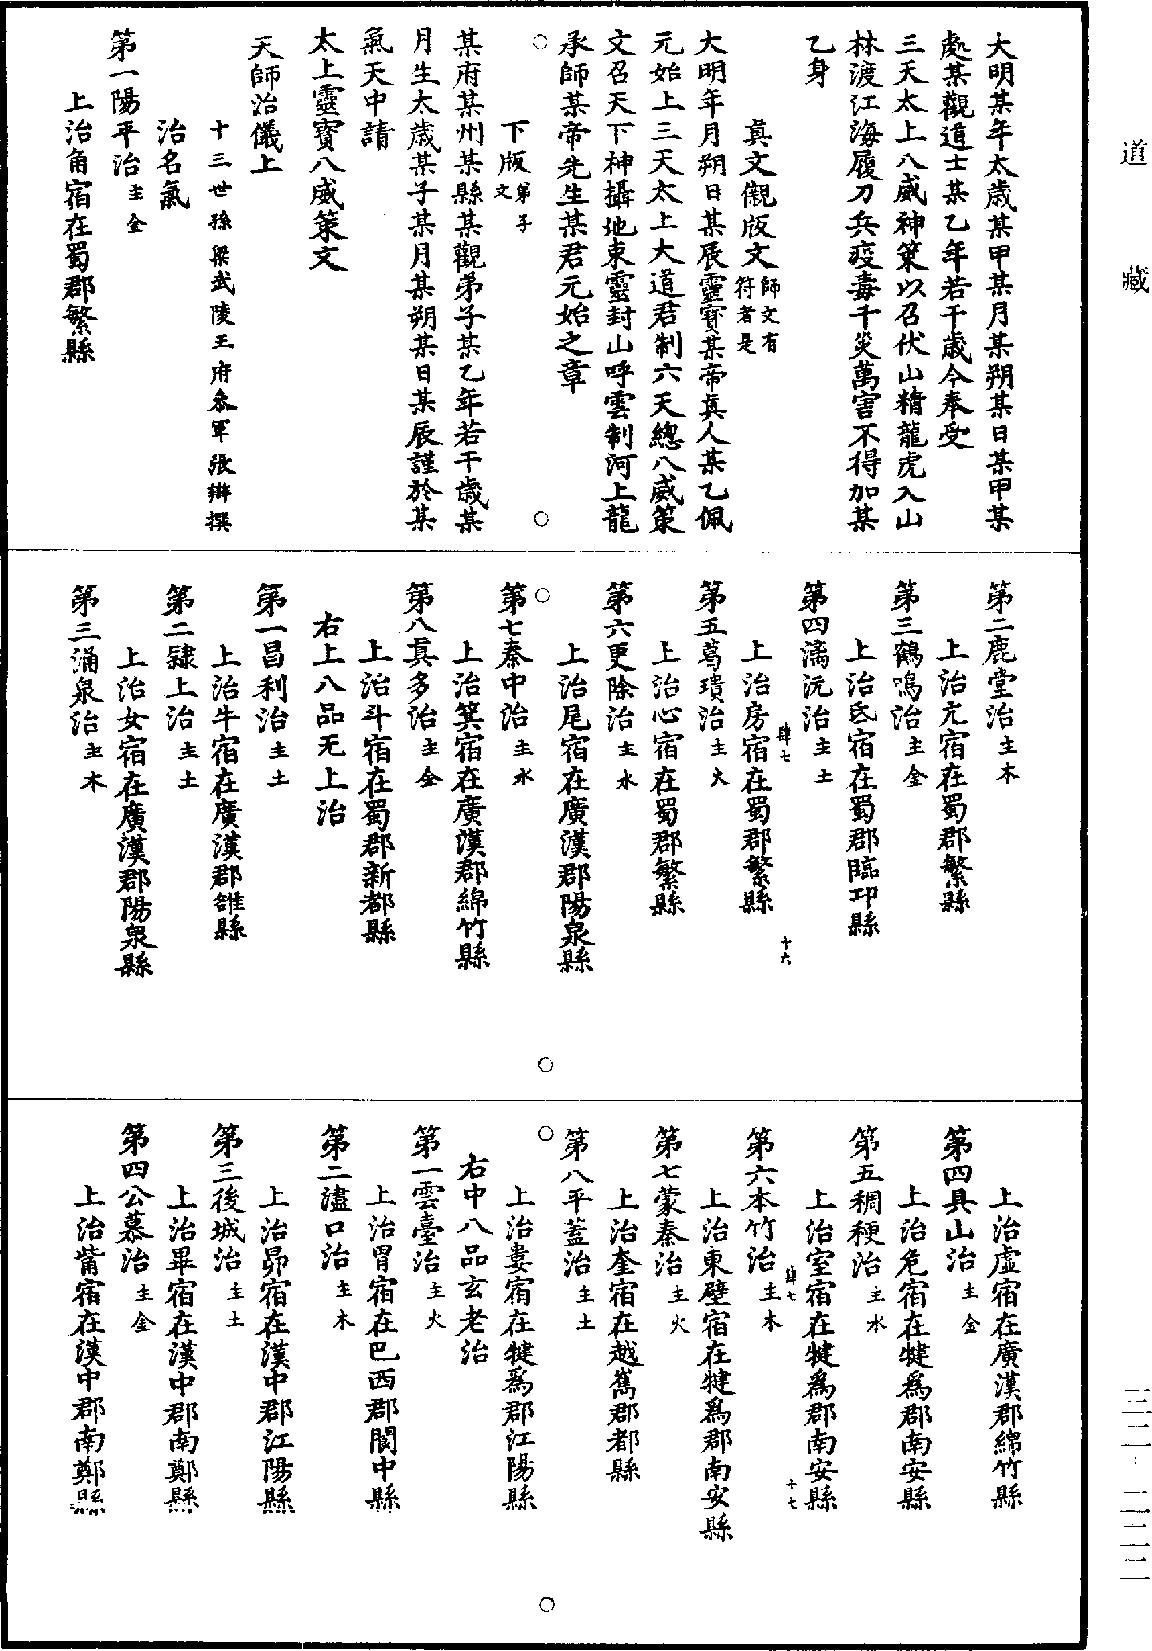 道藏
大明某年太歲某甲某月某朔某日某甲某
處某觀道士某乙年若干歲今奉受
三天太上八威神策以召伏山精龍虎入山
林渡江海履刀兵疫毒千災萬害不得加某
乙身
真文觀版文師文有符者是
大明年月朔日某辰靈寶某帝真人某乙佩
元始上三天太上大道君制六天總八威策
文召天下神攝地束靈封山呼雲制河上龍
承師某帝先生某君元始之章
下版文弟子
某府某州某縣某觀弟子某乙年若干歲某
月生太歲某子某月某朔某日某辰謹於某
氣天中請
太上靈寶八威策文
天師治儀上
十三世孫梁武陵王府參軍張辯撰
治名氣
第一陽平治主金
上治角宿在蜀郡繁縣
第二鹿堂治主木
上治亢宿在蜀郡繁縣
第三鶴鳴治主金
上治氐宿在蜀郡臨邛縣
第四漓沅治主土
肆七 十六
上治房宿在蜀郡繁縣
第五葛璝治主火
上治心宿在蜀郡繁縣
第六更除治主水
上治尾宿在廣漢郡陽泉縣
第七秦中治主水
上治箕宿在廣漢郡綿竹縣
第八真多治主金
上治斗宿在蜀郡新都縣
右上八品无上治
第一昌利治主土
上治牛宿在廣漢郡雒縣
第二隸上治主土
上治女宿在廣漢郡陽泉縣
第三涌泉治主木
上治虛宿在廣漢郡綿竹縣
第四具山治主金
上治危宿在犍爲郡南安縣
第五稠稉治主水
上治室宿在犍爲郡南安縣
肆七 十七
第六本竹治主木
上治東壁宿在犍爲郡南安縣
第七蒙秦治主火
上治奎宿在越嶲郡都縣
第八平蓋治主土
上治婁宿在犍爲郡江陽縣
右中八品玄老治
第一雲臺治主火
上治胃宿在巴西郡閬中縣
第二濜口治主木
上治昴宿在漢中郡江陽縣
第三後城治主土
上治畢宿在漢中郡南鄭縣
第四公慕治主金
上治觜宿在漢中郡南鄭縣
三二·二二二